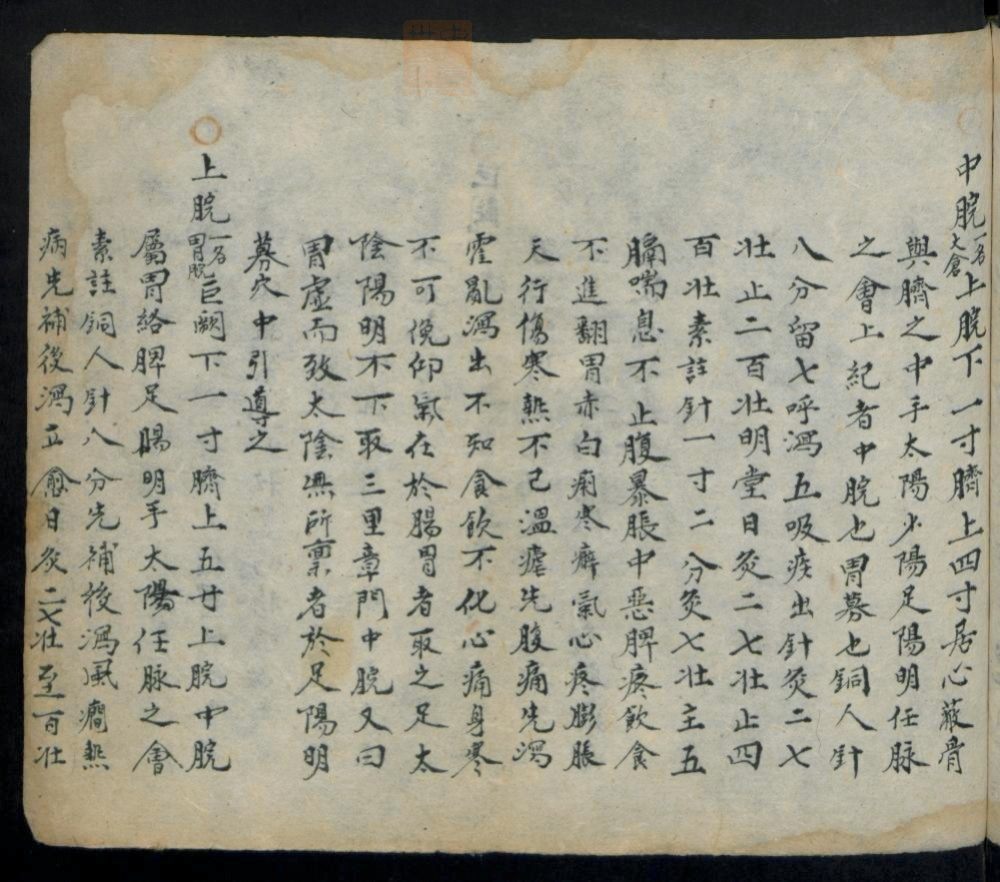 中脘一名太倉上脘下一寸臍上四寸居心蔽骨
與臍之中手太陽少陽足陽明任脉
之會上紀者中脘也胃募也銅人針
八分留七呼瀉五吸疾出針灸二七
壮止二百壮明堂日灸二七壮止四
百壮素註針一寸二分灸七壮主五
膈喘息不止腹暴脹中惡脾疼飲食
不進翻胃赤白痢寒癖氣心疼膨脹
天行傷寒熱不已溫瘧先腹痛先瀉
霍亂瀉出不知食飲不化心痛身寒
不可俛仰氣在於腸胃者取之足太
陰陽明不下取三里章門中脘又曰
胃虛而致太陰無所稟者於足陽明
募穴中引導之
上脘一名胃脘巨闕下一寸臍上五寸上脘中脘
屬胃絡脾足陽明手太陽任脉之會
素註銅人針八分先補後瀉風癇熱
病先補後瀉立愈日灸二七壮至百壮